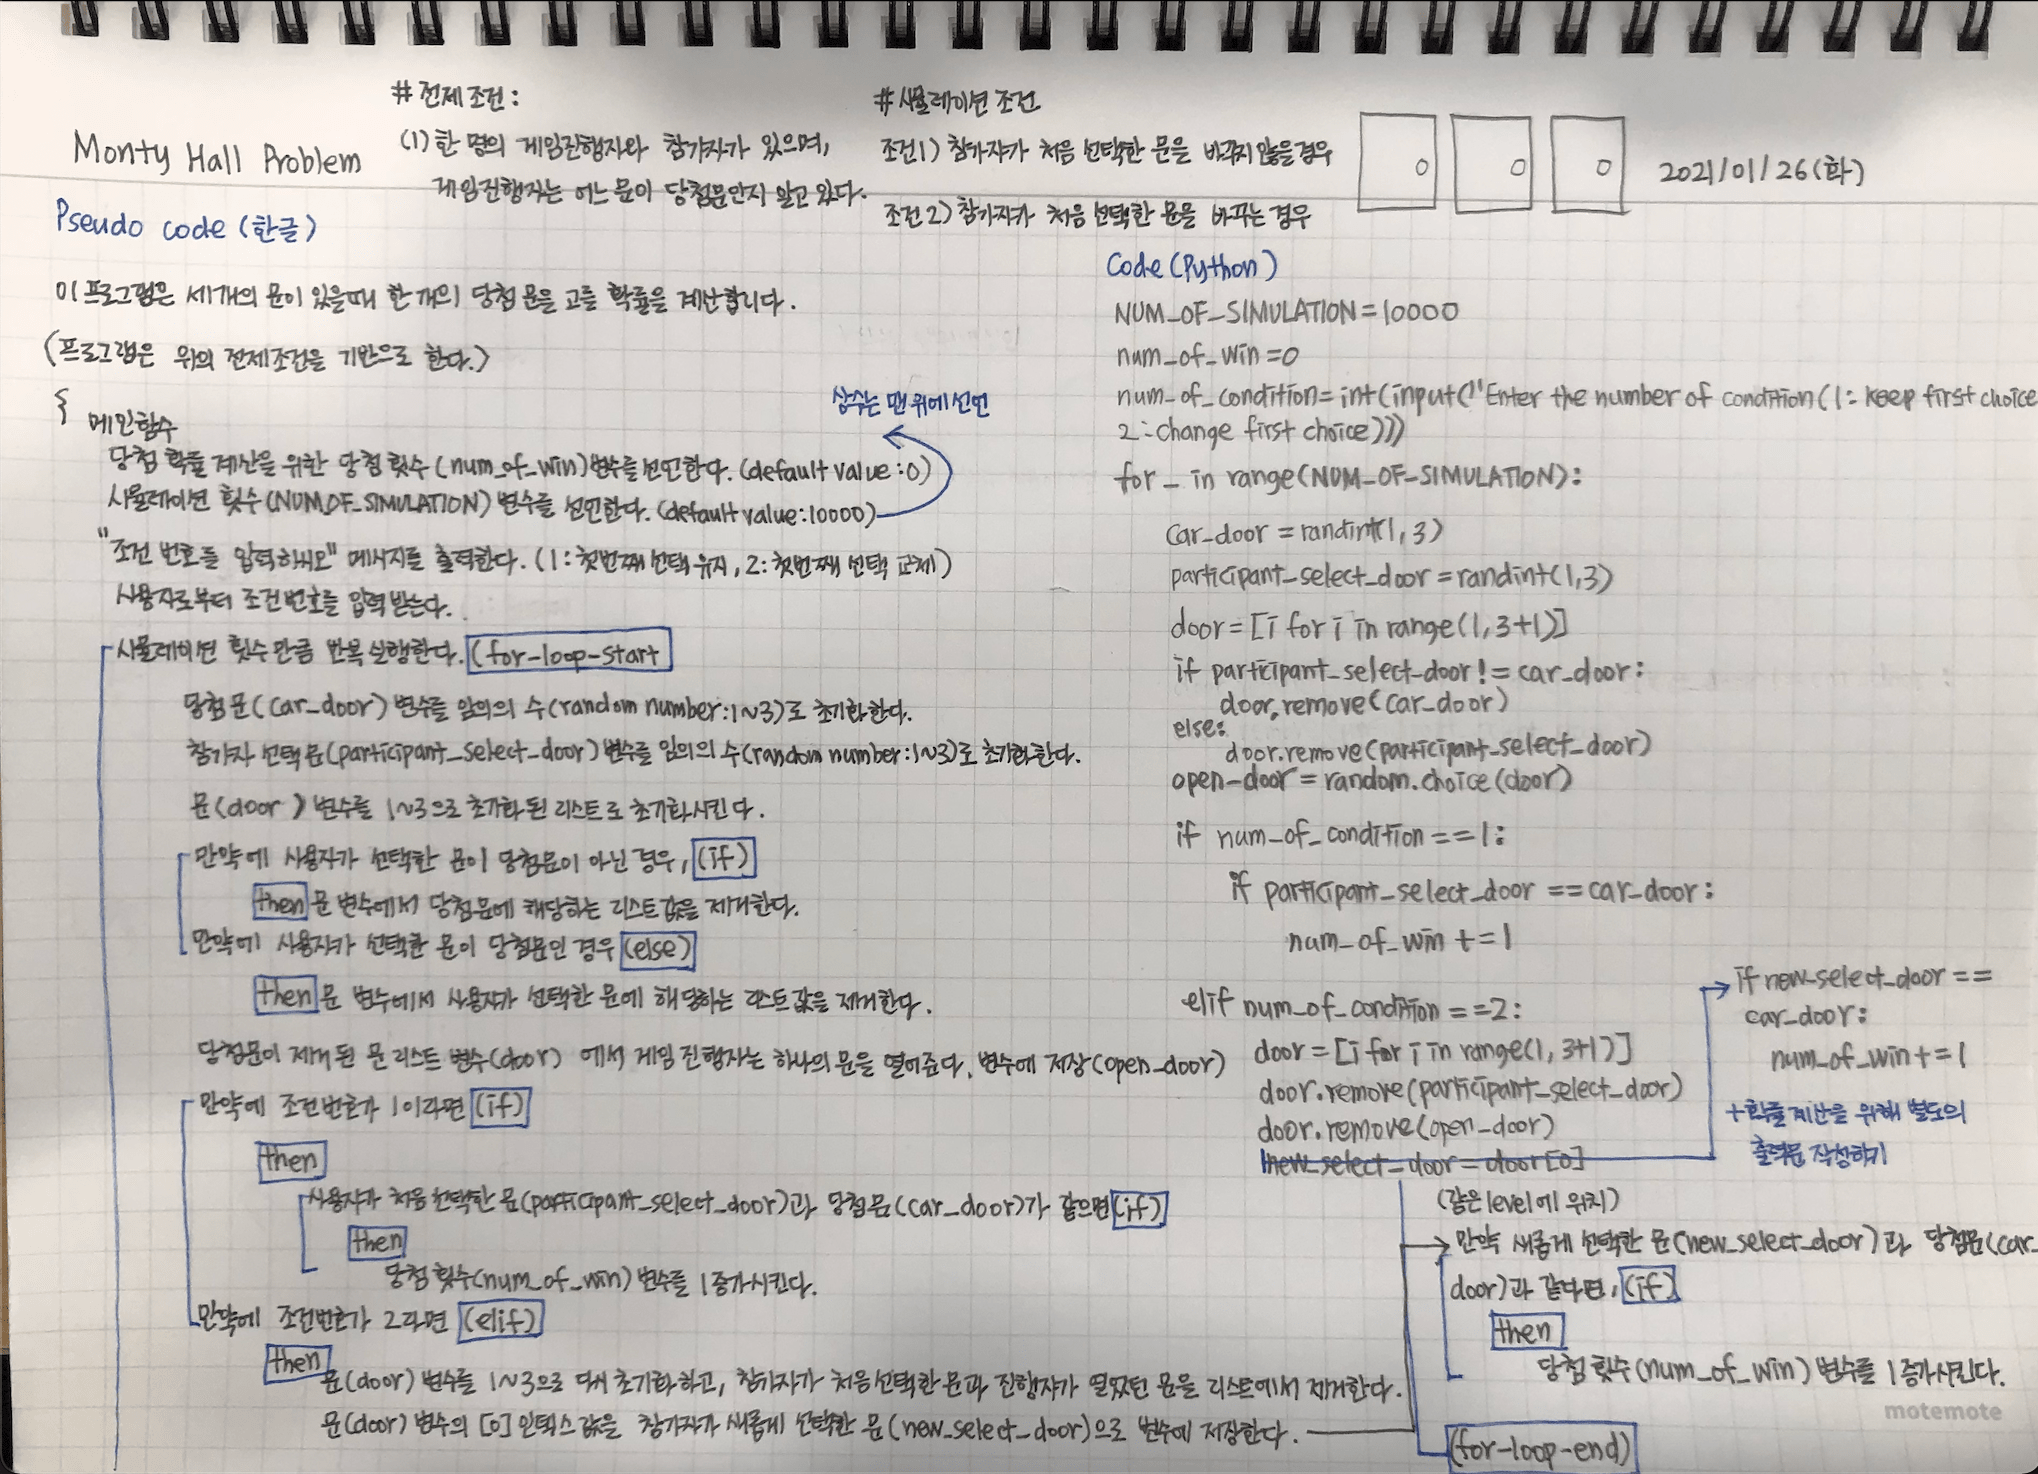 Monty Hall Problem
# 전제조건:
(1) 한 명의 게임진행자와 참가자가 있으며,
게임진행자는 어느 문이 당첨문인지 알고 있다.
# 시뮬레이션 조건
조건1) 참가자가 처음 선택한 문을 바꾸지 않을 경우
조건2) 참가자가 처음 선택한 문을 바꾸는 경우
2021/01/26(화)
Pseudo code (한글)
이 프로그램은 세 개의 문이 있을때 한 개의 당첨 문을 고를 확률을 계산합니다.
(프로그램은 위의 전제조건을 기반으로 한다.)
{
메인함수
상수는 맨 위에 선언
당첨 확률 계산을 위한 당첨 횟수(num_of_win)변수를 선언한다. (default value:0)
시뮬레이션 횟수(NUM_OF_SIMULATION) 변수를 선언한다. (default value:10000)
"조건 번호를 입력하시오" 메시지를 출력한다. (1: 첫번째 선택 유지, 2: 첫번째 선택 교체)
사용자로부터 조건번호를 입력 받는다.
시뮬레이션 횟수만큼 반복 실행한다. (for-loop-start
당첨문(car_door) 변수를 임의의 수(random number:1~3)로 초기화한다.
참가자 선택 문(participant_select_door) 변수를 임의의 수(random number:1~3)로 초기화한다.
문(door) 변수를 1~3으로 초기화 된 리스트로 초기화시킨다.
만약에 사용자가 선택한 문이 당첨문이 아닌 경우, (if)
then 문 변수에서 당첨문에 해당하는 리스트값을 제거한다.
만약에 사용자가 선택한 문이 당첨문인 경우 (else)
then 문 변수에서 사용자가 선택한 문에 해당하는 리스트값을 제거한다.
당첨문이 제거된 문 리스트 변수(door) 에서 게임 진행자는 하나의 문을 열어준다. 변수에 저장(open_door)
만약에 조건번호가 1이라면 (if)
then
사용자가 처음 선택한 문(participant_select_door)과 당첨문(car_door)가 같으면 (if)
then
당첨 횟수(num_of_win) 변수를 1 증가시킨다.
만약에 조건번호가 2라면 (elif)
then
문(door) 변수를 1~3으로 다시 초기화하고, 참가자가 처음 선택한 문과 진행자가 열었던 문을 리스트에서 제거한다.
문(door) 변수의 [0] 인덱스 값을 참가자가 새롭게 선택한 문(new_select_door)으로 변수에 저장한다.
Code (Python)
NUM_OF_SIMULATION=10000
num_of_win=0
num_of_condition=int(input("Enter the number of condition(1: keep first choice
2: change first choice)))
for _ in range(NUM_OF_SIMULATION):
car_door = randint(1, 3)
participant_select_door = randint(1,3)
door=[i for i in range(1, 3+1)]
if participant_select_door != car_door:
door.remove(car_door)
else:
door.remove(participant_select_door)
open_door = random.choice(door)
if num_of_condition ==1:
if participant_select_door == car_door:
num_of_win +=1
elif num_of_condition ==2:
door = [i for i in range(1, 3+1)]
door.remove(participant_select_door)
door.remove(open_door)
new_select_door = door[0]
if new_select_door ==
car_door:
num_of_win +=1
+확률 계산을 위해 별도의
출력문 작성하기
(같은 level에 위치)
만약 새롭게 선택한 문(new_select_door)과 당첨문(car_
door)과 같다면, (if)
then
당첨 횟수(num_of_win) 변수를 1 증가시킨다.
(for-loop-end)
motemote